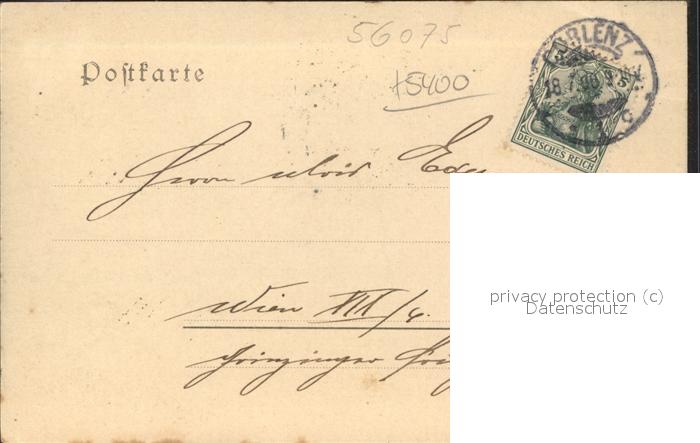 56075
+5400
Postkarte
COBLENZ
18.7.06
5 5
DEUTSCHES REICH
c
Herrn Alois
Wien XIX/4.
Grinzinger
privacy protection (c)
Datenschutz